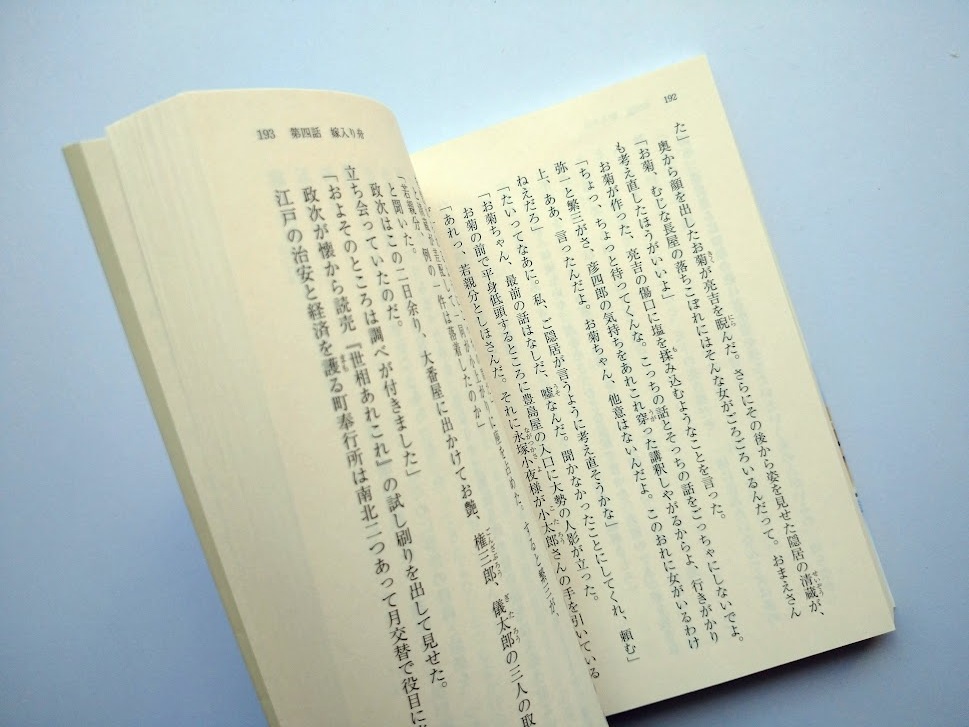 192
た」
奥から顔を出したお菊が亮吉を睨んだ。さらにその後から姿を見せた隠居の清蔵が、
「お菊、むじな長屋の落ちこぼれにはそんな女がごろごろいるんだって。おまえさん
も考え直したほうがいいよ」
お菊が作った、亮吉の傷口に塩を揉み込むようなことを言った。
「ちょっ、ちょっと待ってくんな。こっちの話とそっちの話をごっちゃにしないでよ。
弥一と繁三がさ、彦四郎の気持ちをあれこれ穿った講釈しやがるからよ、行きがかり
上、ああ、言ったんだよ。お菊ちゃん、他意はないんだよ。このおれに女がいるわけ
ねえだろ」
「たいってなあに。私、ご隠居が言うように考え直そうかな」
「お菊ちゃん、最前の話はなしだ、嘘なんだ。聞かなかったことにしてくれ、頼む」
お菊の前で平身低頭するところに豊島屋の入口に大勢の人影が立った。
「あれっ、若親分としほさんだ。それに永塚小夜様が小太郎さんの手を引いている
193 第四話 嫁入り舟
「若親分、例の一件は落着したのか」
と聞いた。
政次はこの二日余り、大番屋に出かけてお艶、権三郎、儀太郎の三人の取
立ち会っていたのだ。
「およそのところは調べが付きました」
政次が懐から読売『世相あれこれ』の試し刷りを出して見せた。
江戸の治安と経済を護る町奉行所は南北二つあって月交替で役目に